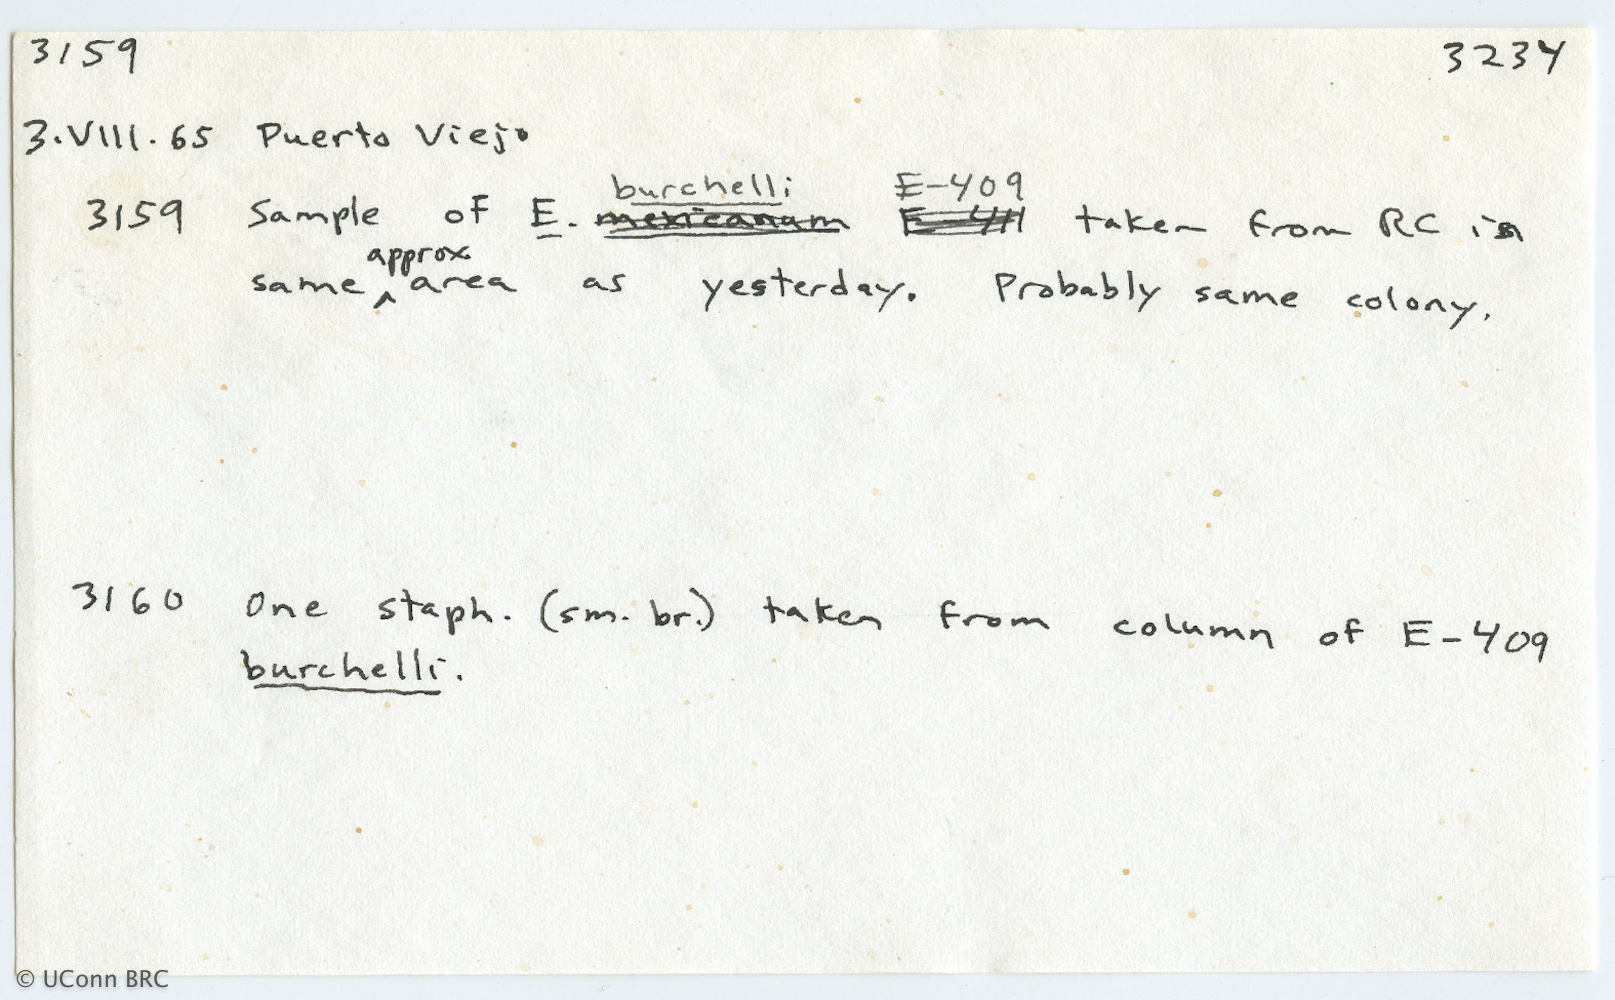 3159 3234
3.VIII.65 Puerto Viejo
burchelli E-409
3159 Sample of E. mexicanum E-411 taken from RC in
approx.
same ^ area as yesterday. Probably same colony.
3160 One staph. (sm. br.) taken from column of E-409
burchelli.
© UConn BRC